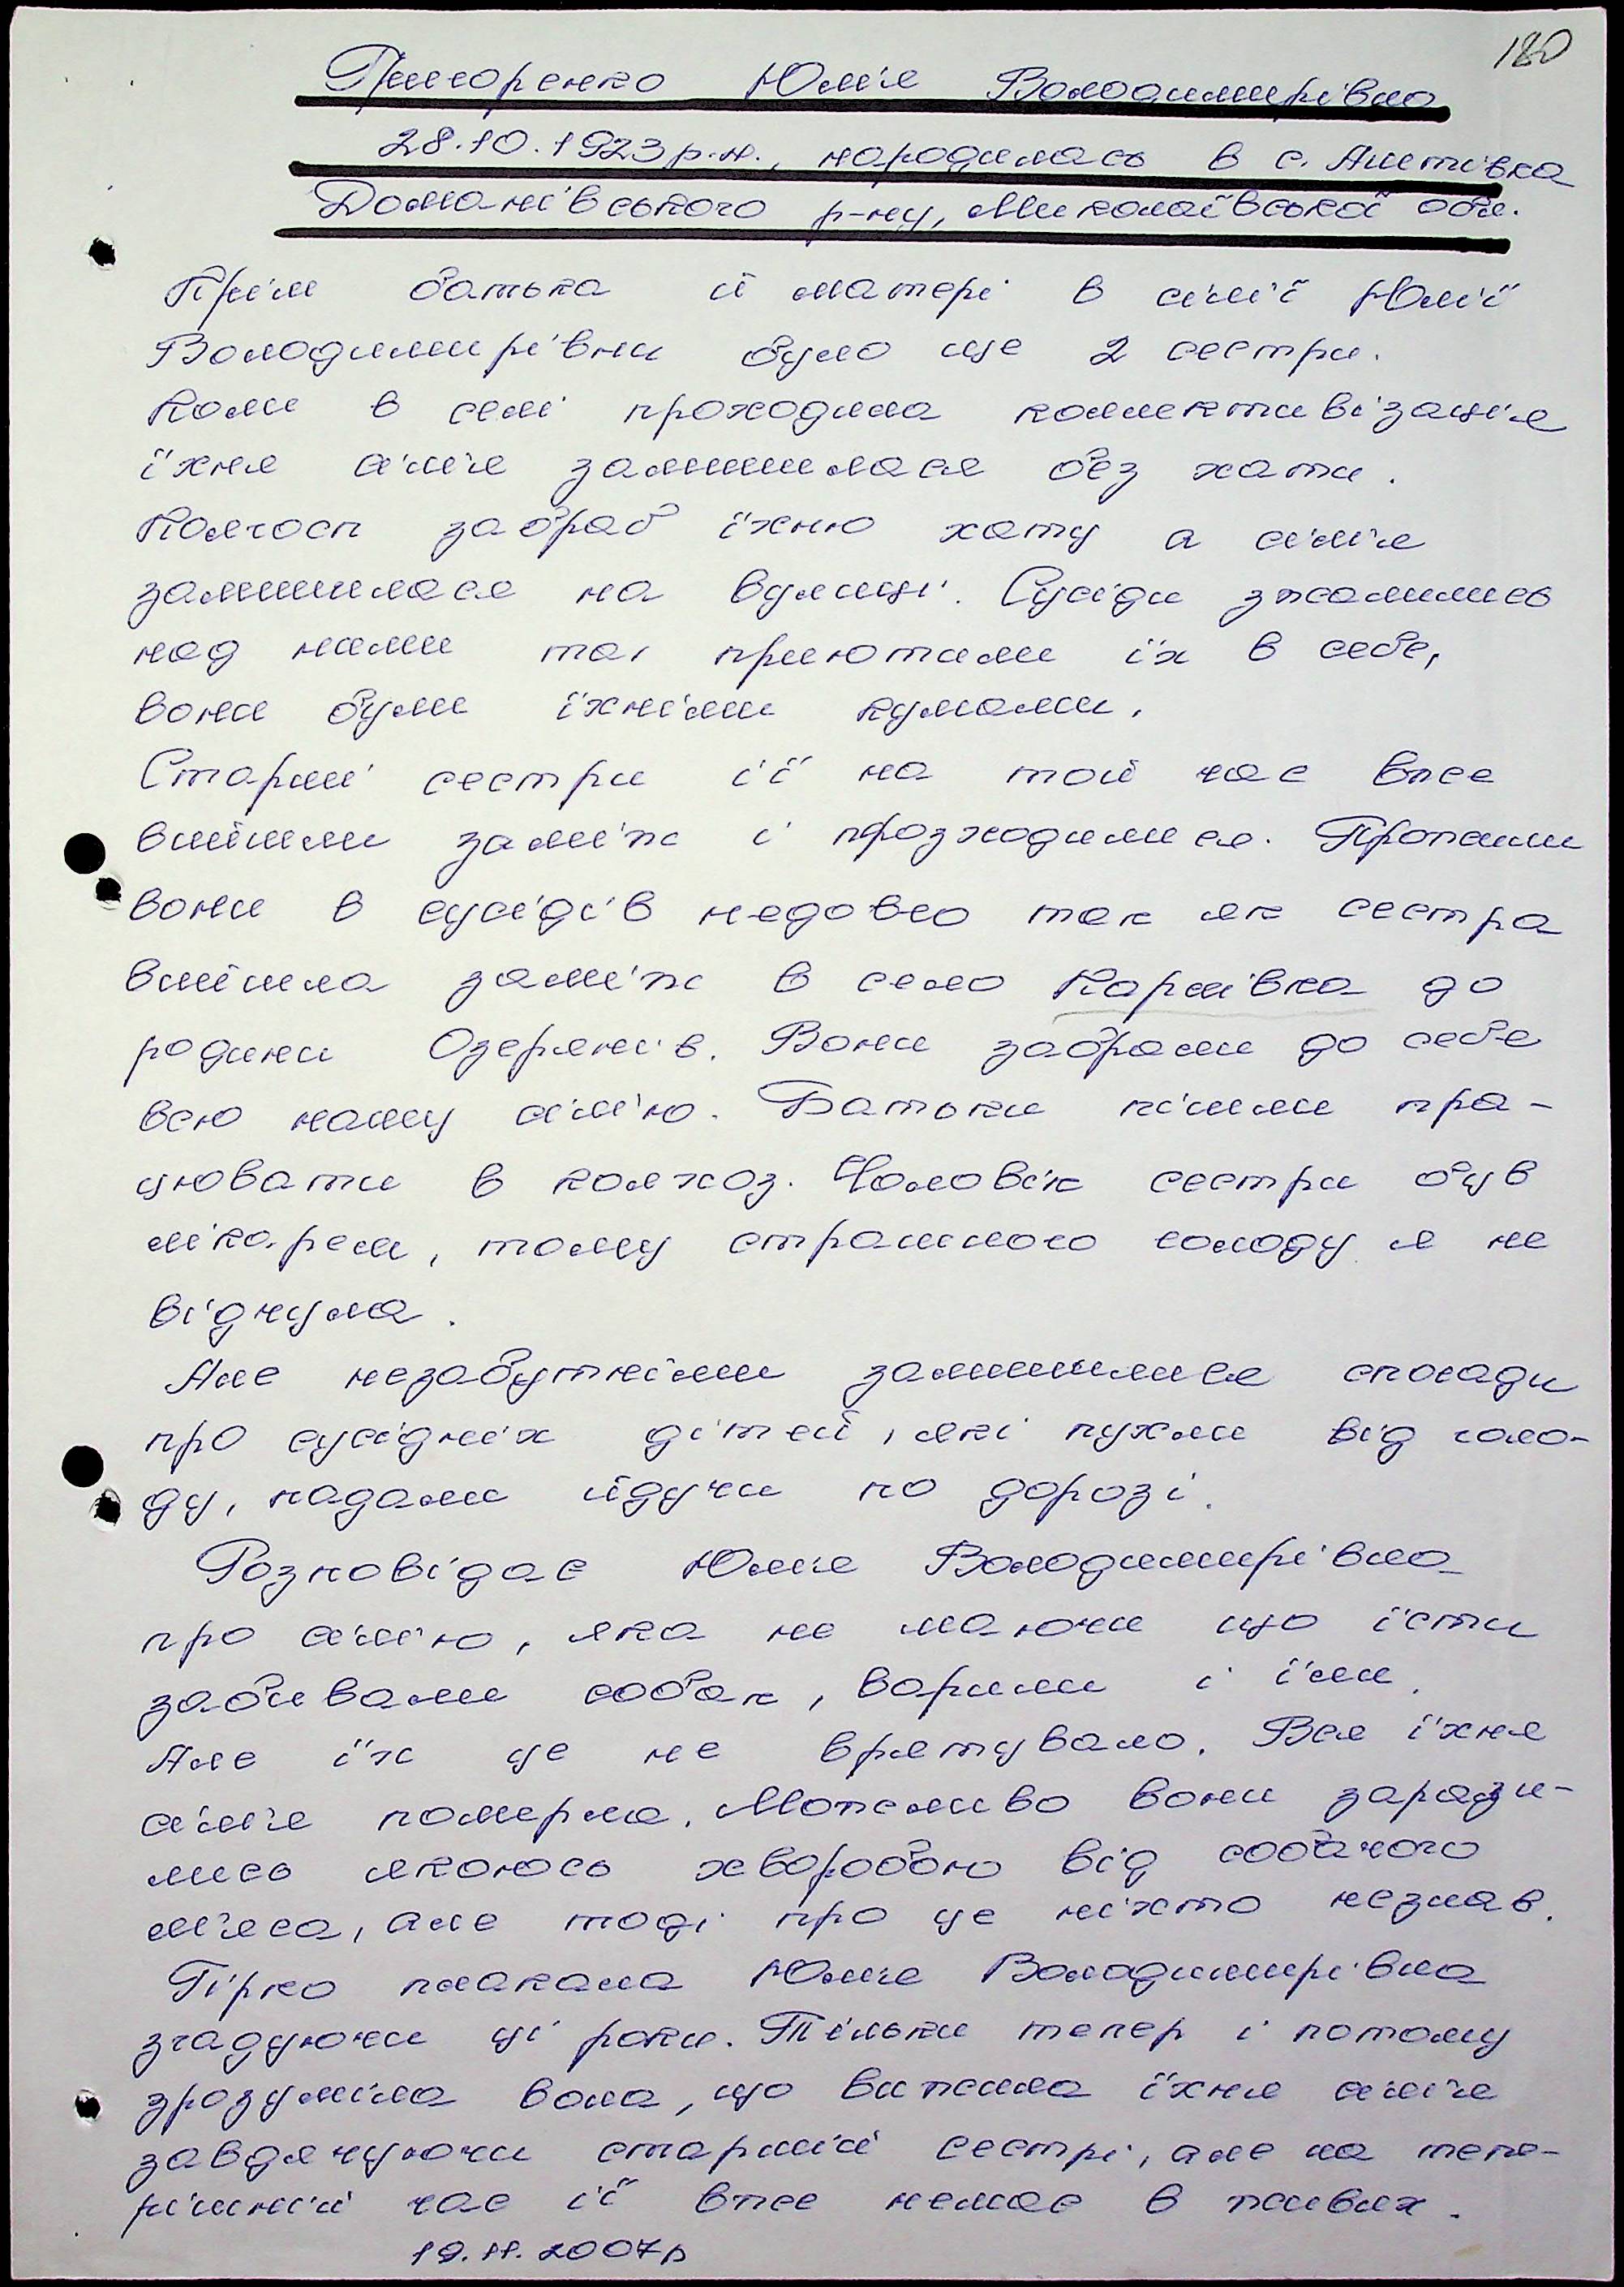 180
Юлія Володимирівна
28.10.1923 р.н., народилась в с. Анетівка
Доманівського р-ну, Миколаївської обл.
Крім батька й матері в сім'ї Юлії
Володимирівни було ще 2 сестри.
Коли в селі проходила коллективізація
їхня сім'я залишилася без хати.
Колгосп забрав їхню хату а сім'я
залишилася на вулиці. Сусіди зжалились
над ними та приютили їх в себе,
вони були їхніми кумами.
Старші сестри її на той час вже
вийшли заміж і розходилися. Прожили
вони в сусідів недовго так як сестра
вийшла заміж в село Карлівка до
родини Озерянів. Вони забрали до себе
всю нашу сім'ю. Батьки пішли пра-
цювати в колхоз. Чоловік сестри був
лікарем, тому страшного голоду я не
відчула.
Але незабутніми залишилися спогади
про сусідніх дітей, які пухли від голо-
ду, падали йдучи по дорозі.
Розповідає Юлія Володимирівна
про сім'ю, яка не маючи що їсти
забивали собак, варили і їли.
Але їх це не врятувало. Вся їхня
сім'я померла.Можливо вони зарази-
лись якоюсь хворобою від собачого
м'яса, але тоді про це ніхто незнав.
Гірко плакала Юлія Володимирівна
згадуючи ці роки. Тільки тепер і потому
зрозуміла вона, що вижила їхня сім'я
завдячуючи старшій сестрі, але на тепе-
рішній час її вже немає в живих.
19.11.2007р